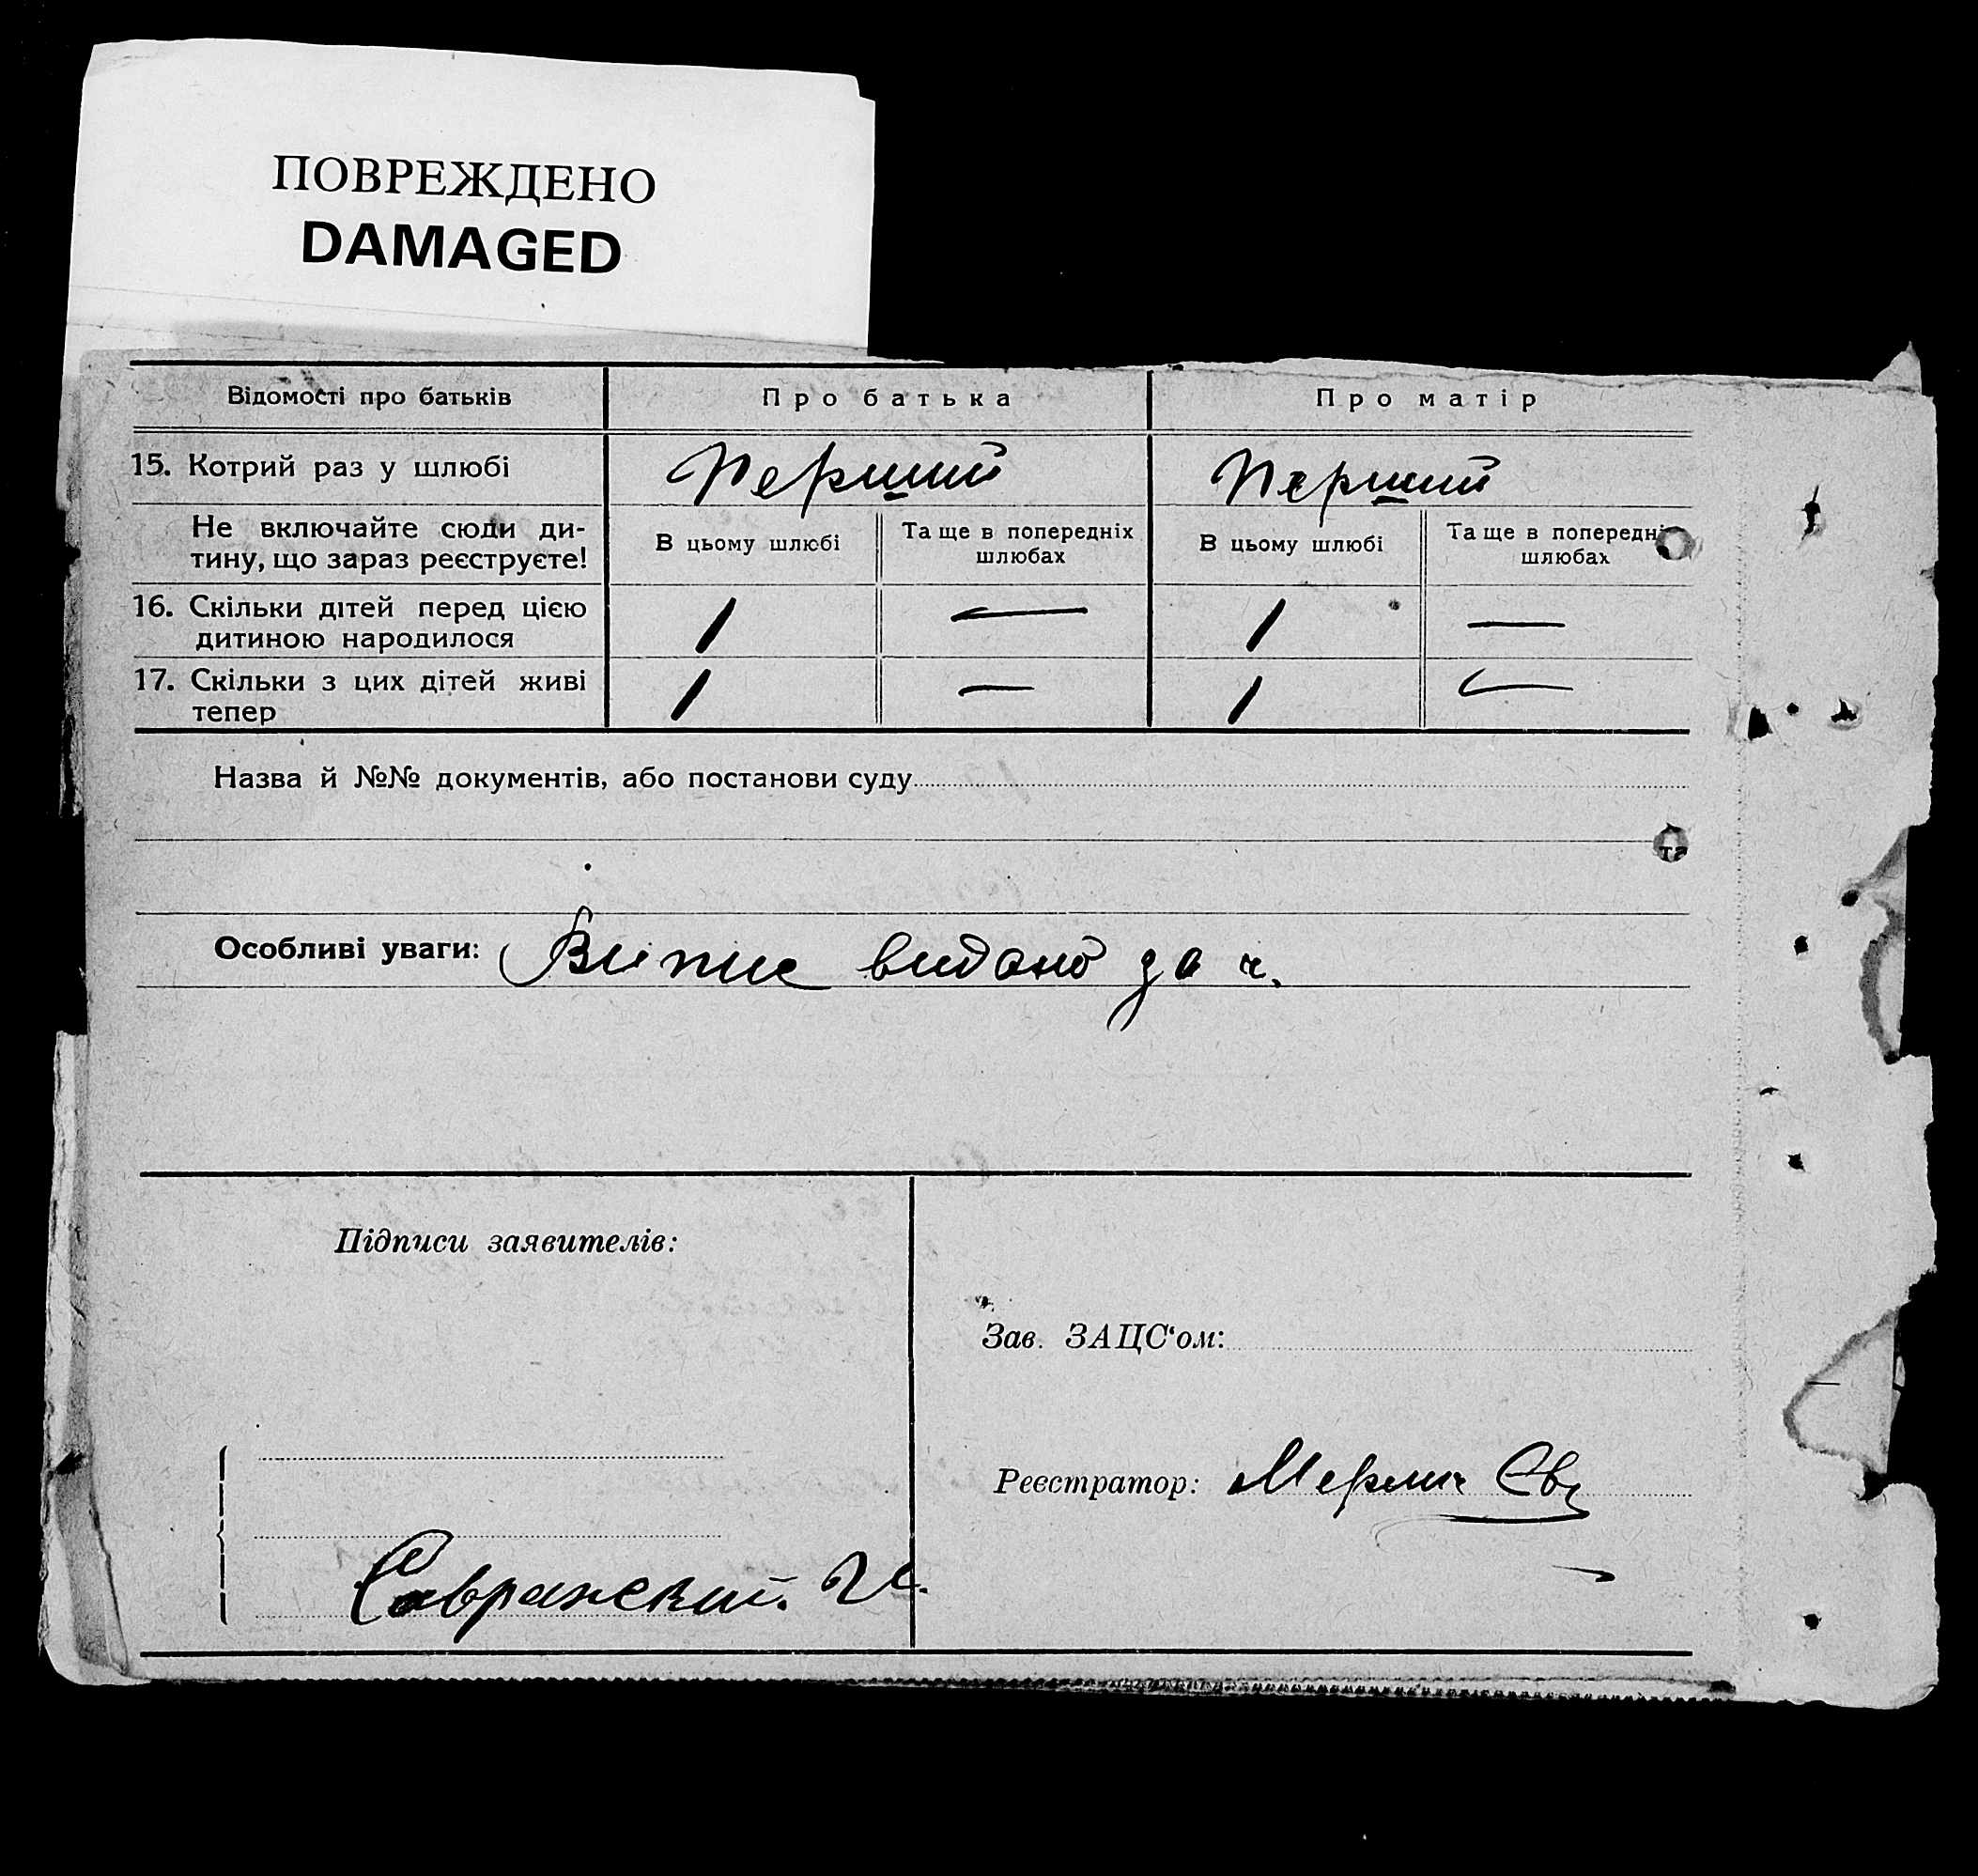 ПОВРЕЖДЕНО
DAMAGED
Відомості про батьків
Про батька
Про матір
15. Котрий раз у шлюбі
Перший
Перший
Не включайте сюди ди-
тину, що зараз реєструєте!
В цьому шлюбі
Та ще в попередніх
шлюбах
В цьому шлюбі
Та ще в попередні
шлюбах
16. Скільки дітей перед цією
дитиною народилося
1
—
1
—
17. Скільки з цих дітей живі
тепер
1
—
1
—
Назва й №№ документів, або постанови суду
та
Особливі уваги: Випис видано за ч.
Підписи заявителів:
Зав. ЗАЦС‘ом:
Реєстратор:
Савранский. И.